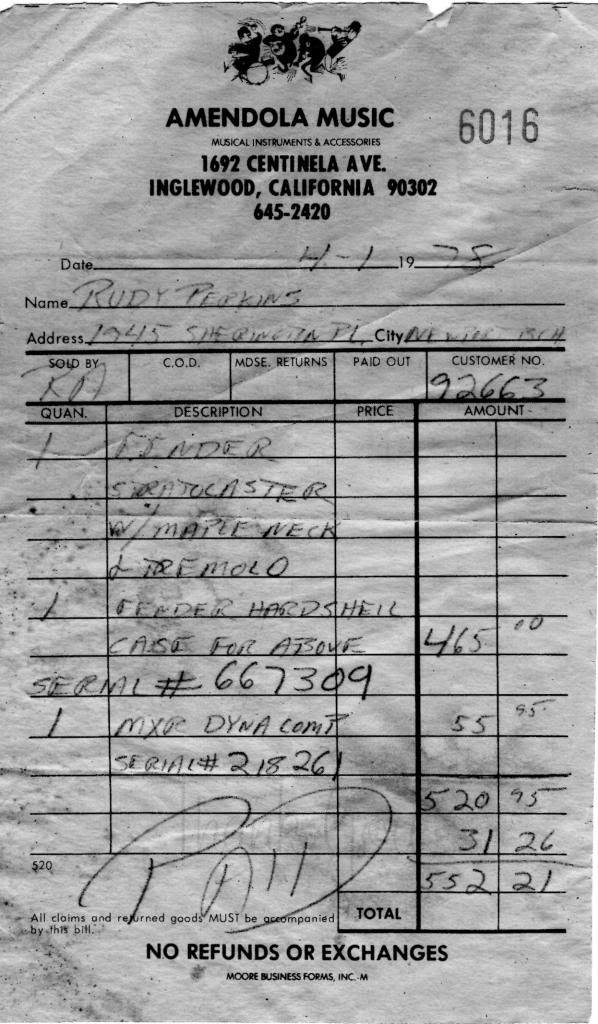 AMENDOLA MUSIC
6016
MUSICAL INSTRUMENTS & ACCESSORIES
1692 CENTINELA AVE.
INGLEWOOD, CALIFORNIA 90302
645-2420
Date 4-1 19 78
Name RUDY PERKINS
Address 1945 SHERINGTON PL. City NEWPORT BCH
SOLD BY C.O.D. MDSE. RETURNS PAID OUT CUSTOMER NO.
92663
QUAN. DESCRIPTION PRICE AMOUNT
1 FENDER
STRATOCASTER
W/ MAPLE NECK
& TREMOLO
1 FENDER HARDSHELL
CASE FOR ABOVE 465 00
SERIAL # 667309
1 MXR DYNA COMP 55 95
SERIAL # 218261
520 95
31 26
520
552 21
PAID
All claims and returned goods MUST be accompanied
by this bill.
TOTAL
NO REFUNDS OR EXCHANGES
MOORE BUSINESS FORMS, INC.-M